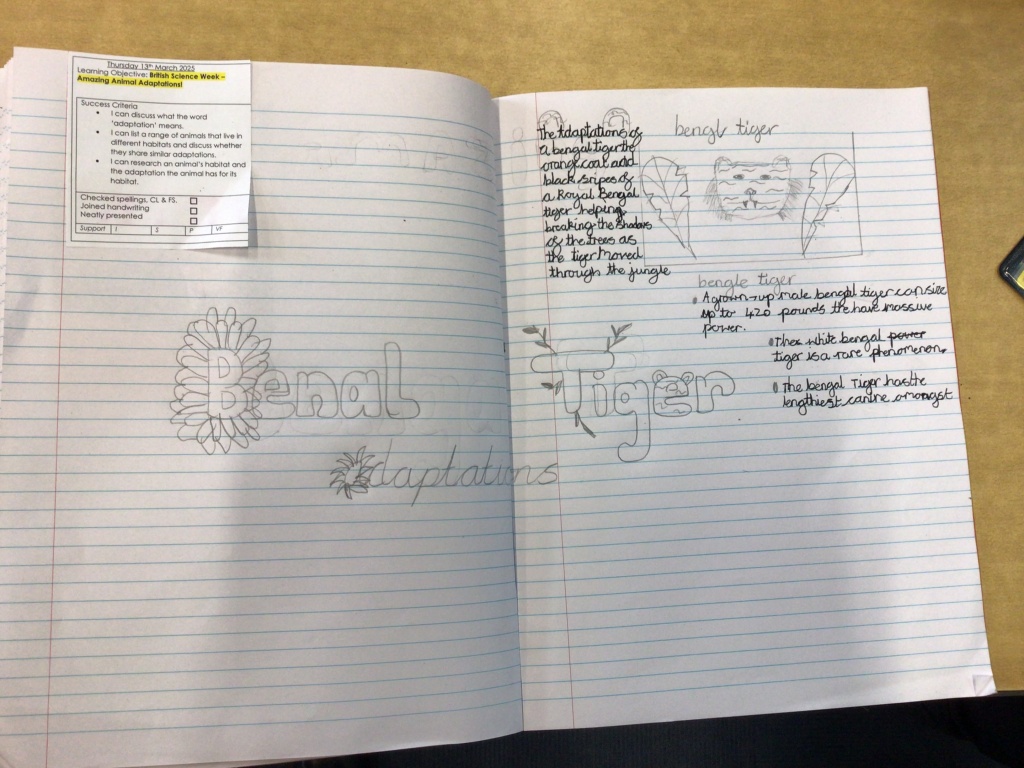 Thursday 13th March 2025
Learning Objective: British Science Week –
Amazing Animal Adaptations!
Success Criteria
• I can discuss what the word
'adaptation' means.
• I can list a range of animals that live in
different habitats and discuss whether
they share similar adaptations.
• I can research an animal's habitat and
the adaptation the animal has for its
habitat.
Checked spellings, CL & FS.
Joined handwriting
Neatly presented
Support I S P VF
Benal Tiger
adaptations
the Adaptations of
a bengal tiger the
orange coat and
black sripes of
a Royal Bengal
tiger helping
breaking the shadows
of the trees as
the tiger moved
through the jungle
bengl tiger
bengle tiger
• A grown-up male bengal tiger can size
up to 420 pounds the have massive
power.
• The white bengal power
tiger is a rare phenomenon.
• The bengal Tiger has the
lengthiest canine amongst